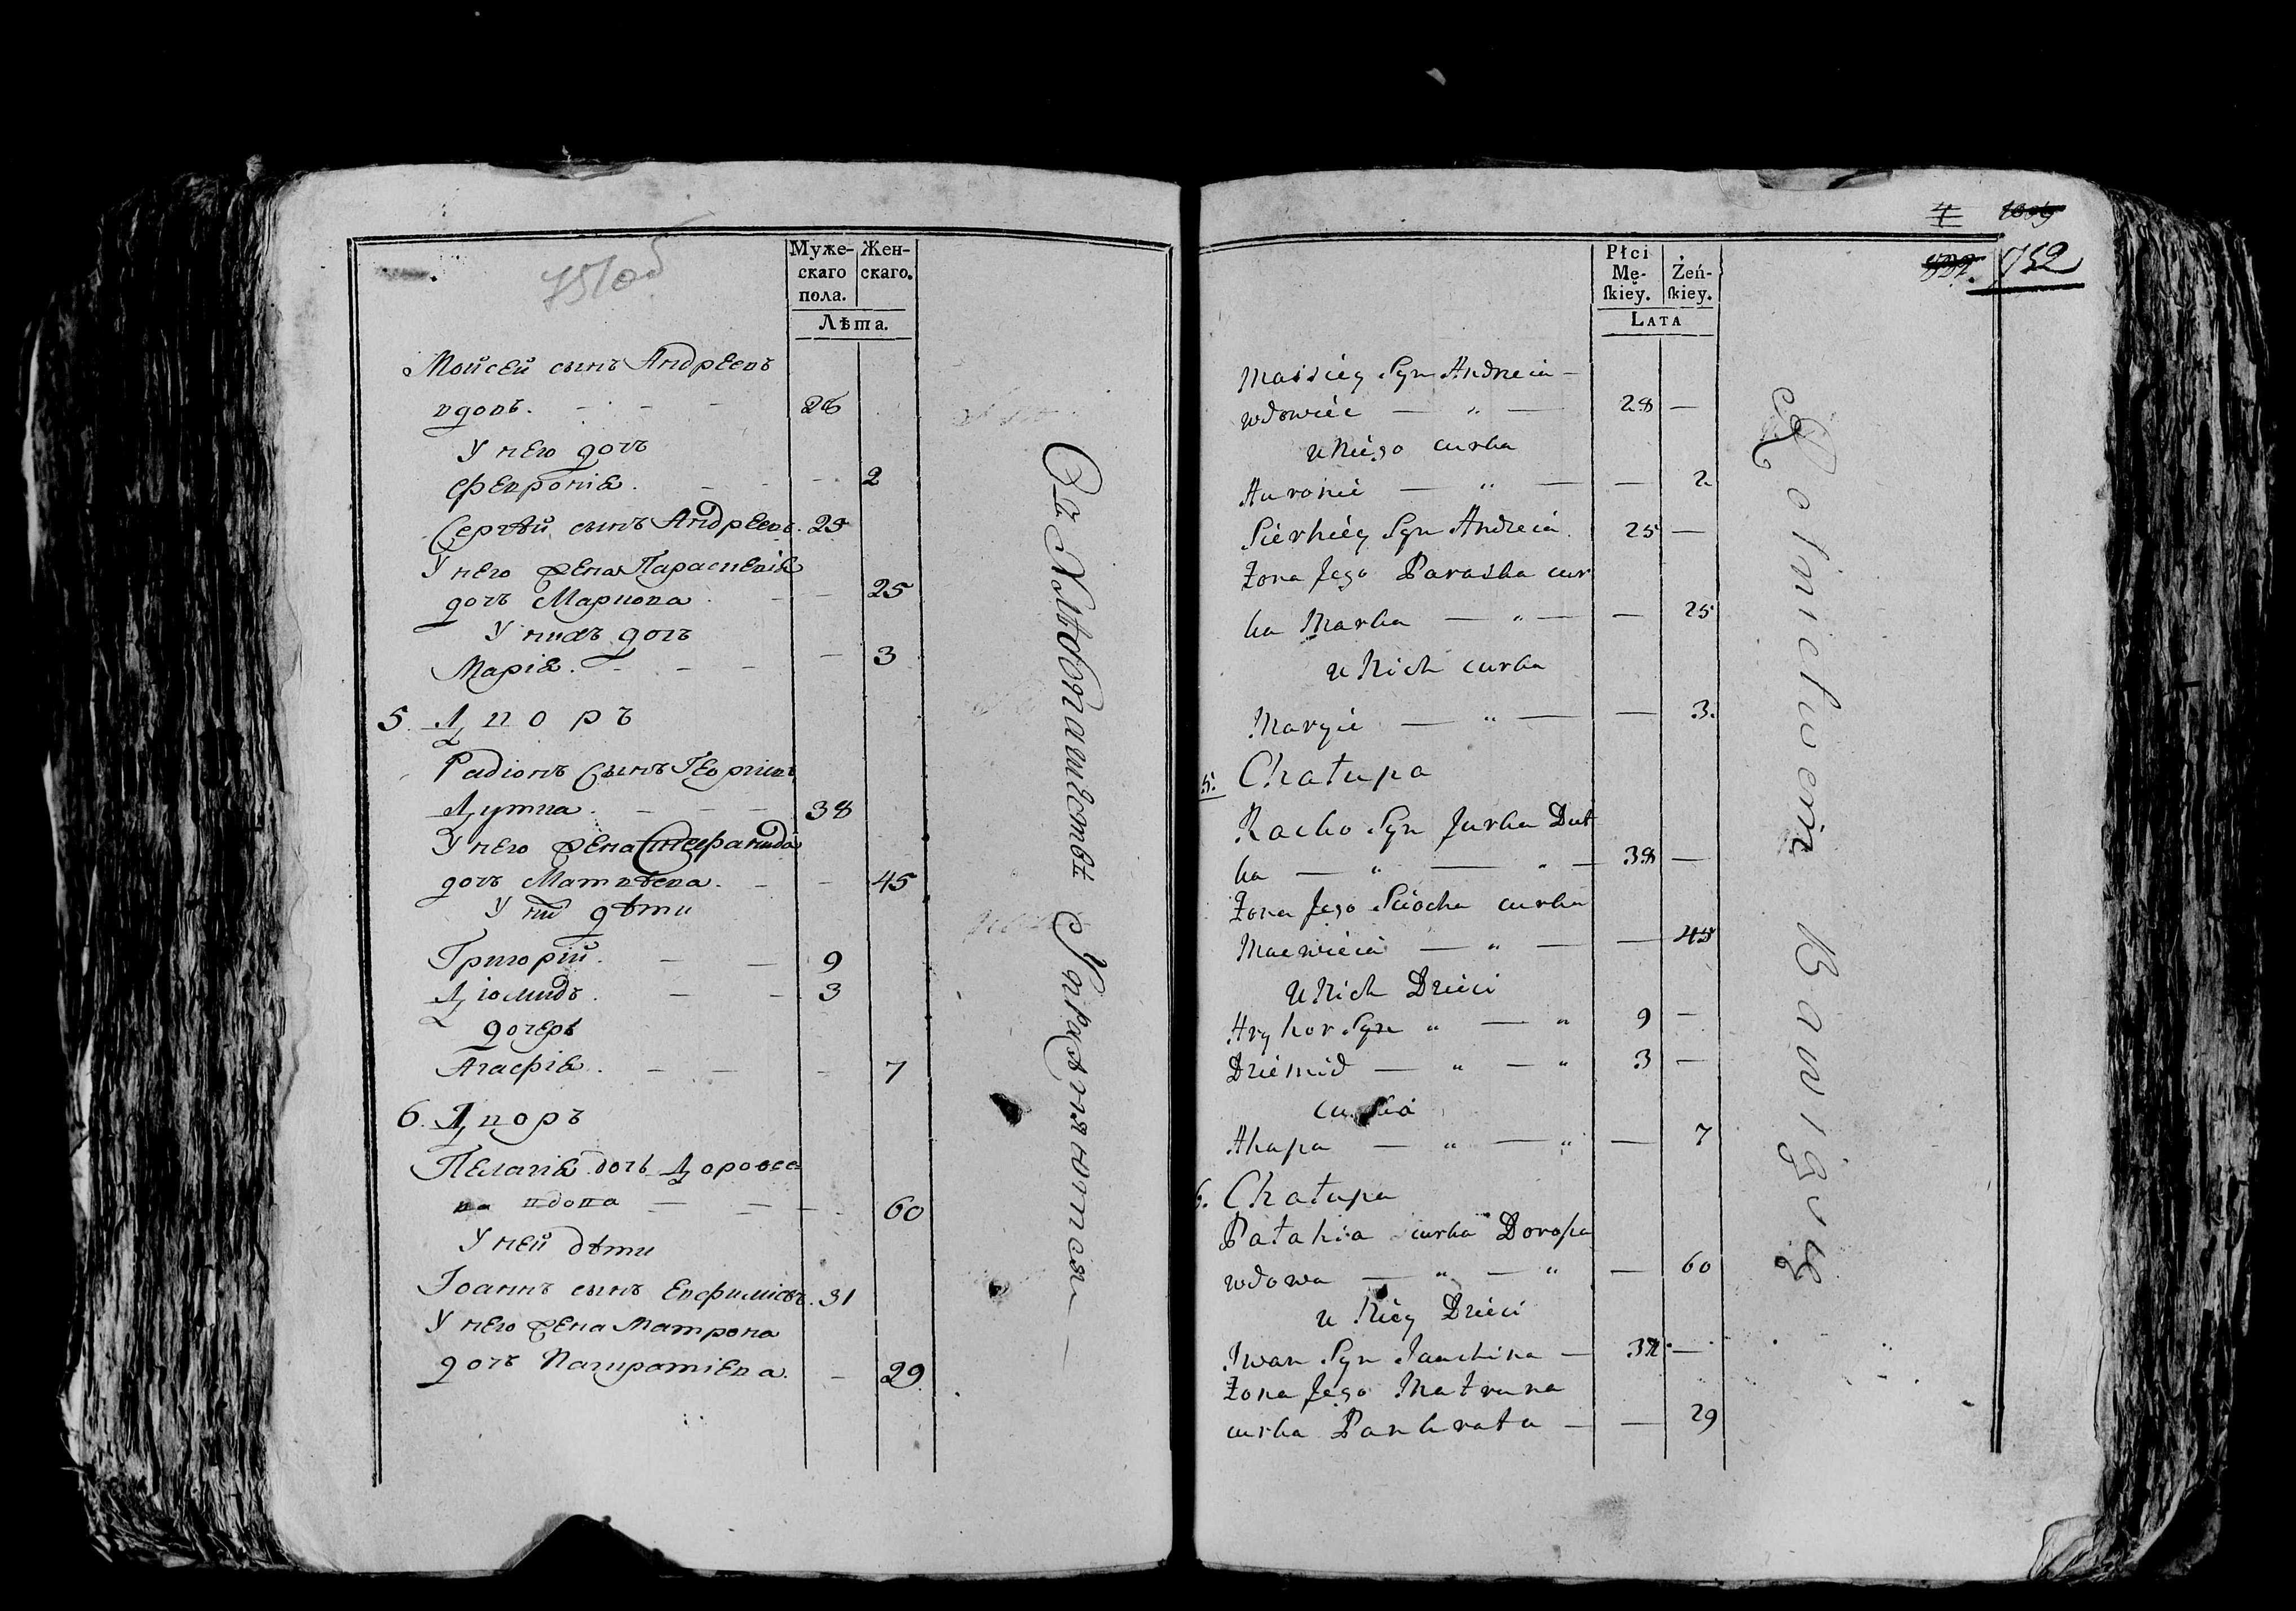 751 об
Муже-
скаго
пола.
Жен-
скаго.
Лѣта.
Мойсей сынъ Андреевъ
вдовъ. 28
У него дочь
Февронія. 2
Сергѣй сынъ Андреевъ. 25
У него жена Параскевія
дочь Маркова 25
У нихъ дочь
Марія. 3
5. Дворъ
Радіонъ сынъ Георгіевъ
Дутка 38
У него жена Стефанида
дочь Матвѣева. 45
У них дѣти
Григорій. 9
Діомидъ. 3
дочерь
Агафія. 7
6. Дворъ
Пелагія дочь Дорофее
ва вдова 60
У ней дѣти
Іоаннъ сынъ Евфиміевъ. 31
У него жена Матрона
дочь Панкратіева. 29
Въ Хлѣбопашествѣ Упражняются
4 1009
752
Płci
Mę-
ſkiey.
Żeń-
ſkiey.
LATA
Maisiey Syn Andreia
wdowiec — „ — 28 —
u Niego curka
Auronie — „ — — 2
Sierhiey Syn Andreia 25 —
Żona Jego Paraska cur
ka Marka — „ — — 25
u Nich curka
Maryie — „ — — 3.
5. Chałupa
Racko Syn Jurka Dut
ka — „ — „ — 38 —
Żona Jego Sciocha curka
Macwieia — „ — — 45
U Nich Dzieci
Hryhor Syn „ — „ 9 —
Dziemid — „ — „ 3 —
curka
Ahapa — „ — „ — 7
6. Chałupa
Pałahia curka Dorofa
wdowa — „ — „ — 60
u Niey Dzieci
Iwan Syn Jauchima — 31 —
Żona Jego Matruna
curka Pankrata — — 29
Rolnictwem Bawią się